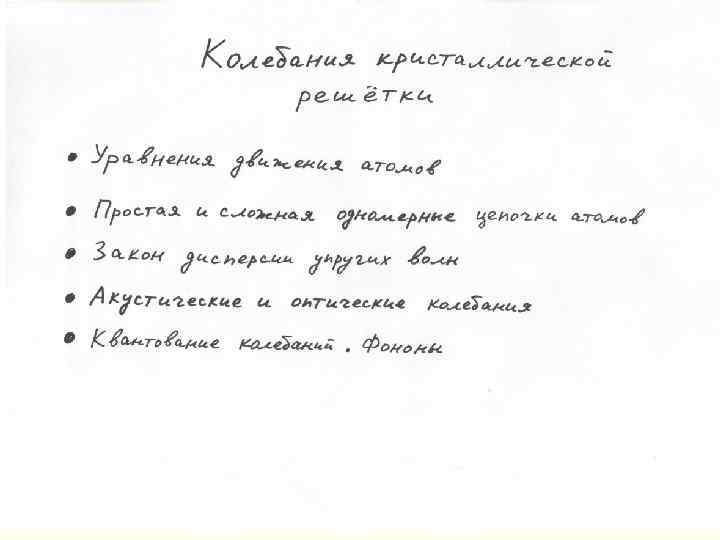 Колебания кристаллической
решётки
• Уравнения движения атомов
• Простая и сложная одномерные цепочки атомов
• Закон дисперсии упругих волн
• Акустические и оптические колебания
• Квантование колебаний. Фононы